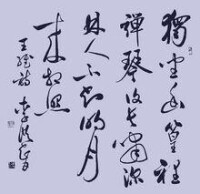 獨坐幽篁裡
彈琴復長嘯深
林人不知明月
來相照
王維詩